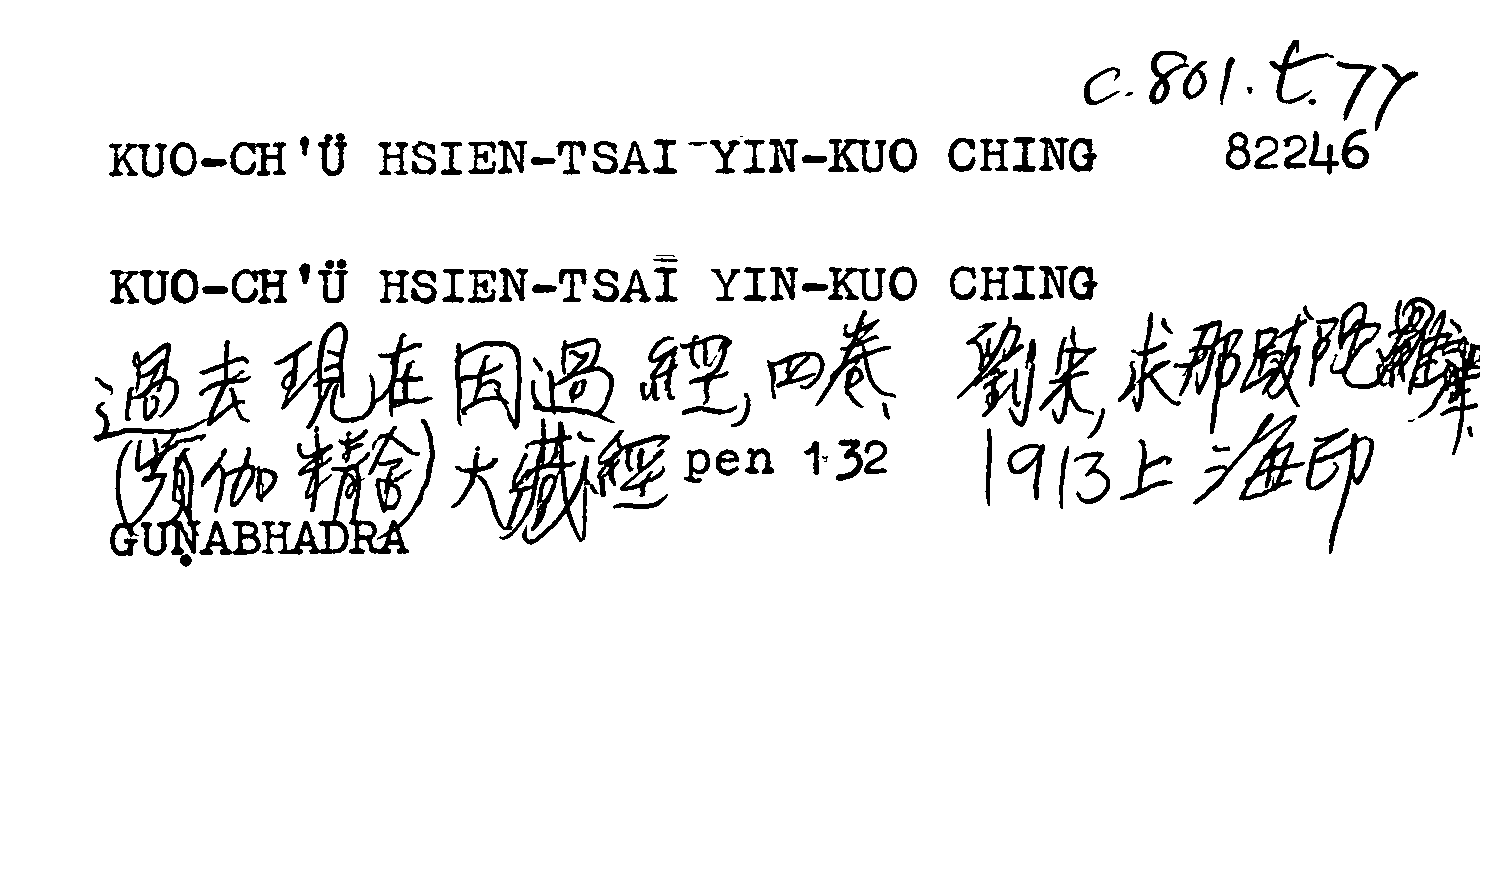 c.801.t.77
KUO-CH'Ü HSIEN-TSAI YIN-KUO CHING 82246
KUO-CH'Ü HSIEN-TSAI YIN-KUO CHING
過去現在因過經,四卷. 劉宋,求那跋陀羅譯.
(頻伽精舍)大藏經 pen 132 1913上海印
GUṆABHADRA